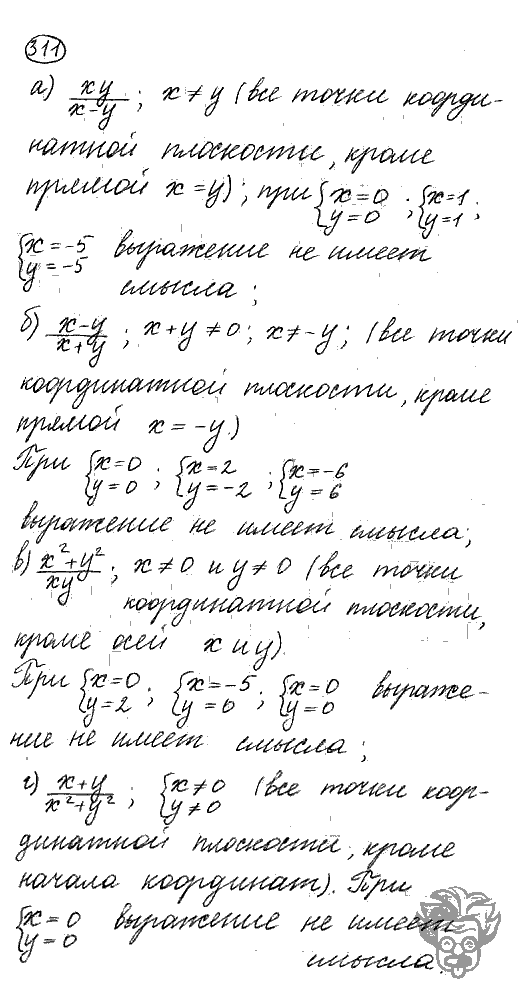 311
а) xy/(x-y); x ≠ y (все точки коорди-
натной плоскости, кроме
прямой x = y); при {x=0 y=0; {x=1 y=1;
{x=-5 y=-5 выражение не имеет
смысла;
б) (x-y)/(x+y); x+y ≠ 0; x ≠ -y; (все точки
координатной плоскости, кроме
прямой x = -y.)
При {x=0 y=0; {x=2 y=-2; {x=-6 y=6
выражение не имеет смысла;
в) (x²+y²)/(xy); x ≠ 0 и y ≠ 0 (все точки
координатной плоскости,
кроме осей x и y).
При {x=0 y=2; {x=-5 y=0; {x=0 y=0 выраже-
ние не имеет смысла;
г) (x+y)/(x²+y²); {x≠0 y≠0 (все точки коор-
динатной плоскости, кроме
начала координат). При
{x=0 y=0 выражение не имеет
смысла.